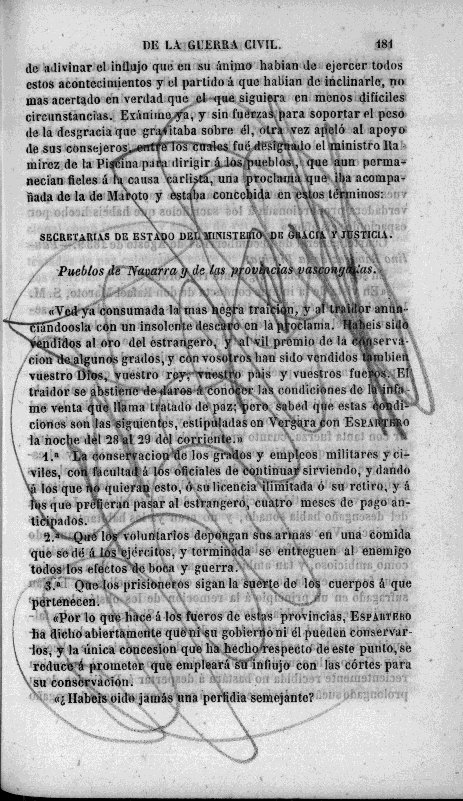 DE LA GUERRA CIVIL. 181
de adivinar el influjo que en su ánimo habian de ejercer todos
estos acontecimientos y el partido á que habian de inclinarle, no
mas acertado en verdad que el que siguiera en menos difíciles
circunstancias. Exánime ya, y sin fuerzas para soportar el peso
de la desgracia que gravitaba sobre él, otra vez apeló al apoyo
de sus consejeros, entre los cuales fué designado el ministro Ra
mirez de la Piscina para dirigir á los pueblos, que aun perma-
necian fieles á la causa carlista, una proclama que iba acompa-
ñada de la de Maroto y estaba concebida en estos términos:
SECRETARIAS DE ESTADO DEL MINISTERIO DE GRACIA Y JUSTICIA.
Pueblos de Navarra y de las provincias vascongadas.
«Ved ya consumada la mas negra traicion, y al traidor anun-
ciándoosla con un insolente descaro en la proclama. Habeis sido
vendidos al oro del estrangero, y al vil premio de la conserva-
cion de algunos grados, y con vosotros han sido vendidos tambien
vuestro Dios, vuestro rey, vuestro pais y vuestros fueros. El
traidor se abstiene de daros á conocer las condiciones de la infa-
me venta que llama tratado de paz; pero sabed que estas condi-
ciones son las siguientes, estipuladas en Vergara con ESPARTERO
la noche del 28 al 29 del corriente.»
1.ª La conservacion de los grados y empleos militares y ci-
viles, con facultad á los oficiales de continuar sirviendo, y dando
á los que no quieran esto, ó su licencia ilimitada ó su retiro, y á
los que prefieran pasar al estrangero, cuatro meses de pago an-
ticipados.
2.ª Que los voluntarios depongan sus armas en una comida
que se dé á los ejércitos, y terminada se entreguen al enemigo
todos los efectos de boca y guerra.
3.ª Que los prisioneros sigan la suerte de los cuerpos á que
pertenecen.
«Por lo que hace á los fueros de estas provincias, ESPARTERO
ha dicho abiertamente que ni su gobierno ni él pueden conservar-
los, y la única concesion que ha hecho respecto de este punto, se
reduce á prometer que empleará su influjo con las córtes para
su conservacion.
«¿Habeis oido jamás una perfidia semejante?